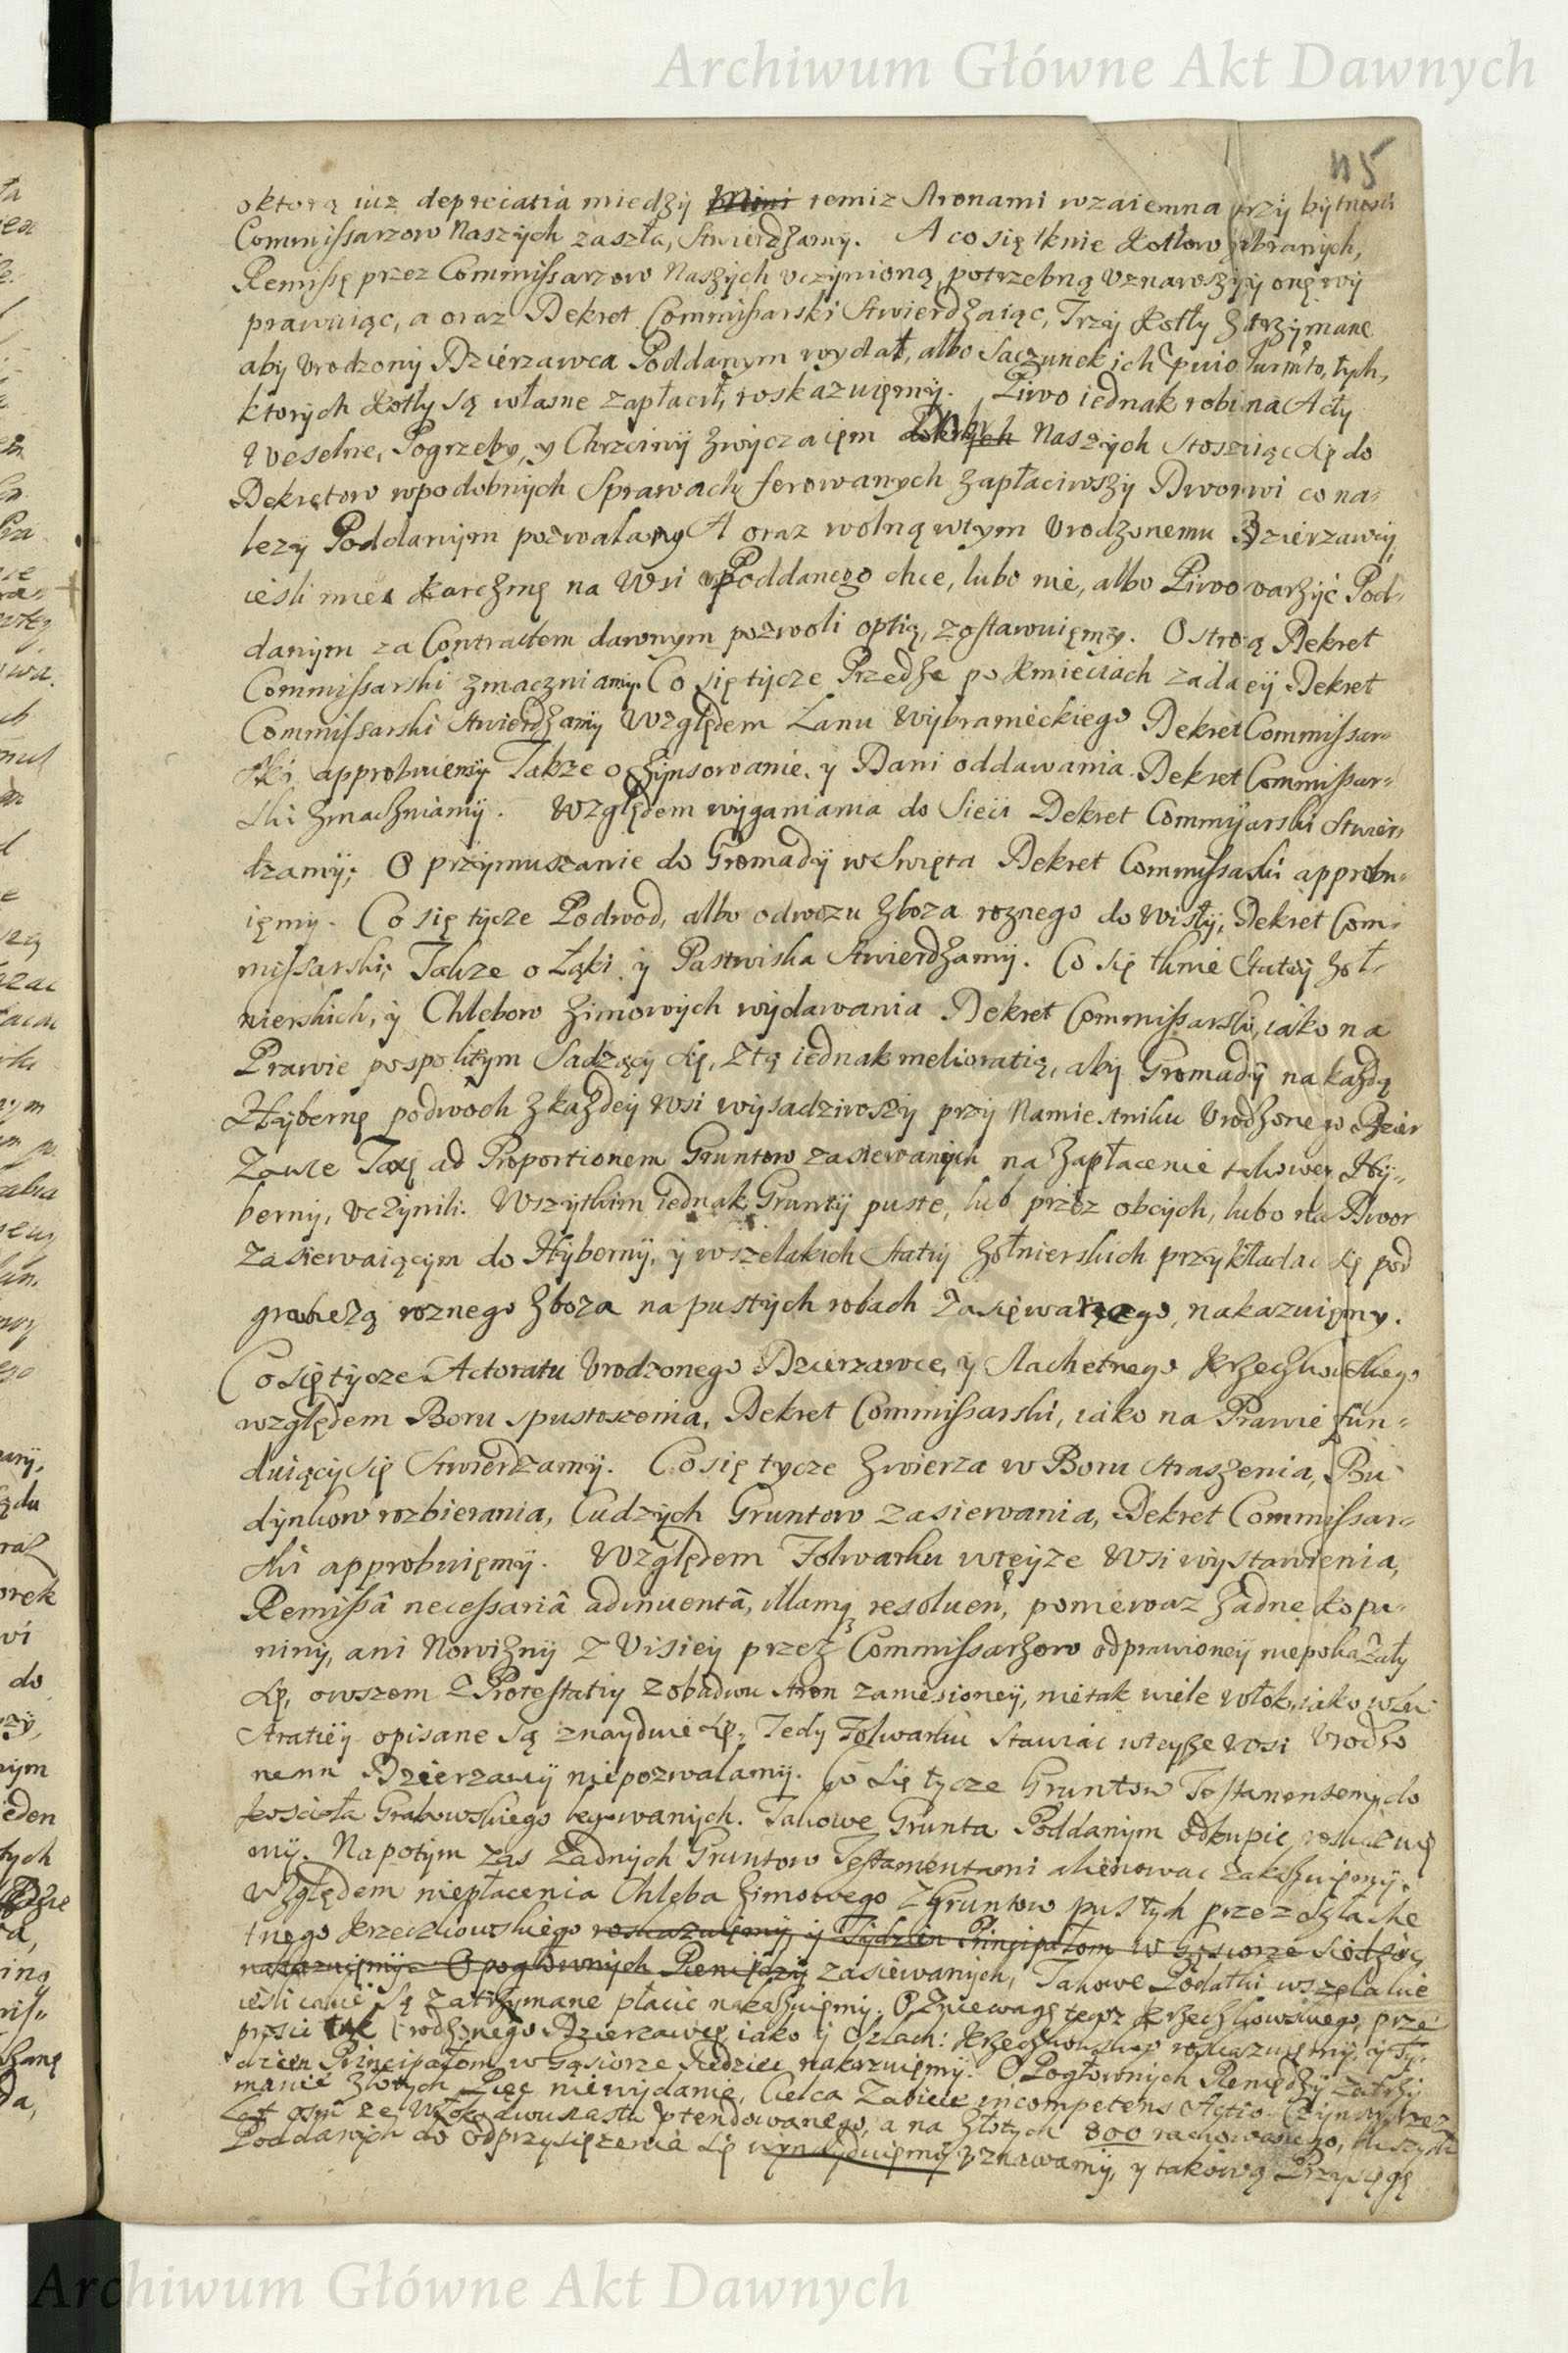 Archiwum Główne Akt Dawnych
115
oktorą iuz depreciatia miedzy Mimi temiz Stronami wzaiemna przy bytnosci
Commissarzow Naszych zaszła, Stwierdzamy. A co się tknie Kotłow zabranych,
Remissę przez Commissarzow Naszych uczynioną, potrzebną uznawszy y onę wy
prawuiąc, a oraz Dekret Commissarski Stwierdzaiąc, Trzy Kotły zatrzymane
aby Urodzony Dzierzawca Poddanym wydał, albo Saczunek ich tych,
ktorych Kotły są własne zapłacił, roskazuięmy. Piwo iednak robi na Acty
Weselne, Pogrzeby, y Chrzciny zwyczaięm Naszych Stosuiąc się do
Dekretow wpodobnych Sprawach ferowanych zapłaciwszy Dworowi co na=
lezy Poddanym pozwalamy A oraz wolną wtym Urodzonemu Dzierzawcy,
ieśli miec Karczmę na Wsi Poddanego chce, lubo nie, albo Piwo warzyć Pod=
danym za Contractem dawnym pozwoli optią, zostawuięmy. O Strozą Dekret
Commissarski zmaczniamy. Co się tycze Przedze po Kmieciach zadaey Dekret
Commissarski Stwierdzamy Względem Łanu Wybranieckiego Dekret Commissar=
ski approbuiemy Takze o zynsowanie, y Dani oddawania Dekret Commissar=
ski zmaczniamy. Względem wyganiania do Sieci Dekret Commissarski Stwier=
dzamy; O przymuszanie do Gromady w Swięta Dekret Commissarski approbu=
ięmy. Co się tycze Podwod, albo odwozu zboza roznego do Wisły, Dekret Com=
missarski; Takze o Łąki y Pastwiska Stwierdzamy. Co się tknie Statiy zoł=
nierskich, y Chlebow zimowych wydawania Dekret Commissarski, iako na
Prawie pospolitym Sadzący się, z tą iednak melioratią, aby Gromady na kazdą
Hybernę podwoch z kazdey Wsi wysadziwszy przy Namiestniku Urodzonego Dzier
zawce Taxę ad Proportionem Gruntow zasiewanych na zapłacenie takowey Hy=
berny, uczynili. Wszytkim iednak Grunty puste, lub przez obcych, lubo na Dwor
zasiewaiącym do Hyberny, y wszelakich Statiy zołnierskich przykładac się pod
grabezą roznego zboza na pustych rolach zasięwaiącego, nakazuięmy.
Co się tycze Actoratu Urodzonego Dzierzawce, y Slachetnego Krzeczkowskiego
względem Boru spustoszenia, Dekret Commissarski, iako na Prawie fun=
duiący się Stwierdzamy. Co się tycze zwierza w Boru straszenia, Bu=
dynkow rozbierania, Cudzych Gruntow zasiewania, Dekret Commissar=
ski approbuięmy. Względem Folwarku wteyze Wsi wystawienia,
Remissâ necessariâ adinventâ, illamq resoluen, poniewaz zadne Kopa=
niny, ani Nowizny z Visiey przez Commissarzow odprawioney niepokazały
się, owszem z Protestatiy z obudwu Stron zaniesioney, nietak wiele Włok, iako w Lu
stratiey opisane są znayduie się; Tedy Folwarku Stawiac wteyze Wsi Urodzo
nemu Dzierzawcy niepozwalamy. Co się tycze Gruntow Testamentem do
Koscioła Grabowskiego legowanych. Takowe Grunta Poddanym odkupic roskazuię
my. Napotym zas zadnych Gruntow Testamentami alienowac zakazuięmy.
Względem niepłacenia Chleba zimowego z Gruntow pustych przez Szlache
tnego Krzeczkowskiego roskazuięmy, y Tydzien Principałom w Gąsiorze siedziec
nakazuięmy. O pogłownych Pieniędzy zasiewanych, Takowe Podatki wszelakie
ieśli iakie są zatrzymane płacic nakazuięmy. O Zniewagę tegoz Krzeczkowskiego, prze
prosic tak Urodzonego Dzierzawcę iako y Szlach: Krzeczkowskiego roskazuięmy, y Ty=
dzien Principałom w Gąsiorze siedziec nakazuięmy. O Pogłownych Pieniędzy zatrzy
manie złotych niewydanie, Cielca zabicie incompetens Actio. Czynszu przez
Lat osm ze Włok dwunastu ptendowanego, a na złotych 800 rachowanego,
Poddanych do odprzysiężenia się uznawamy, y takową Przysięgę
Archiwum Główne Akt Dawnych